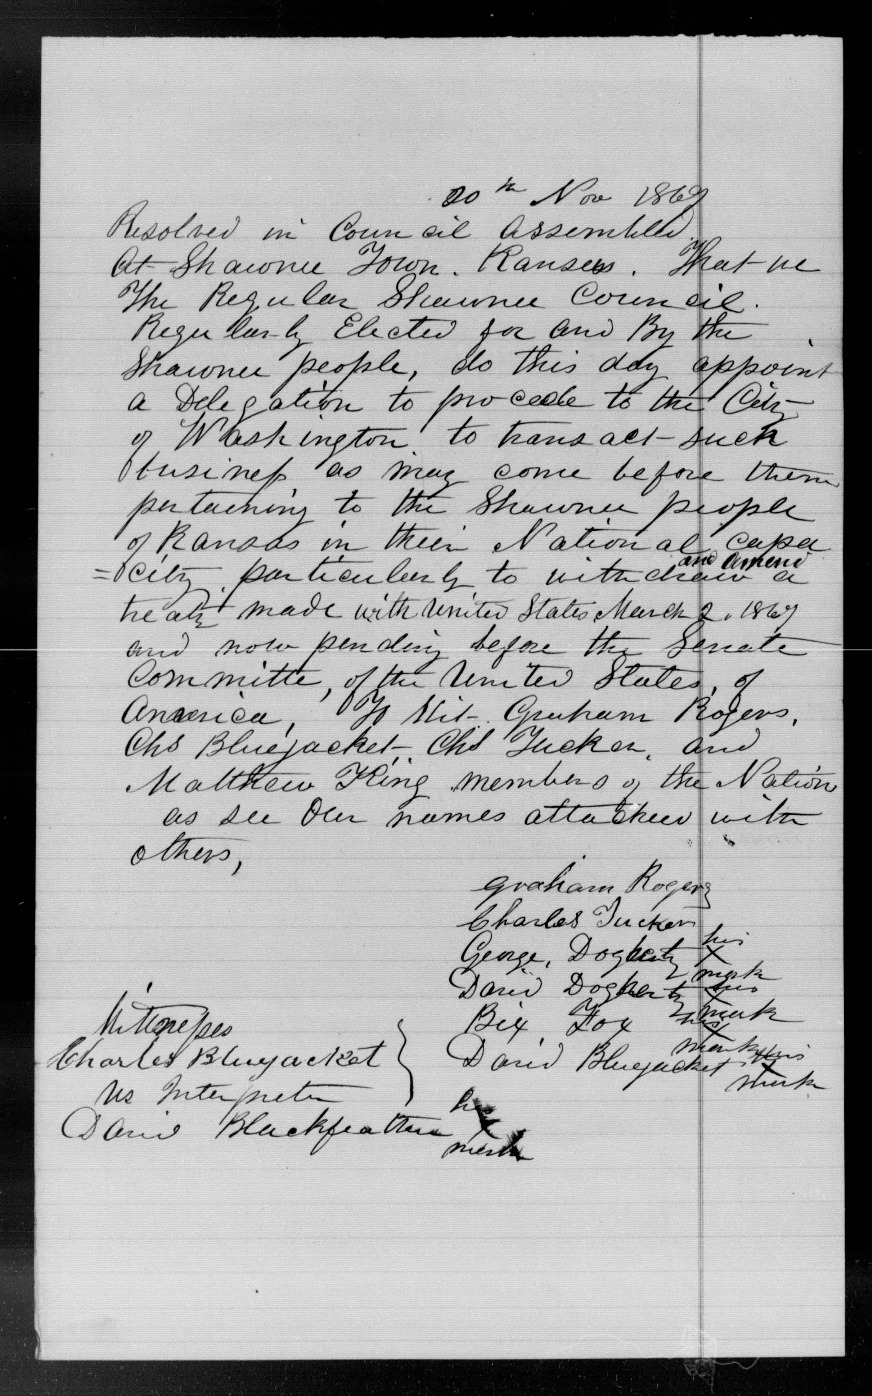 20th Nov 1867
Resolved in Council assembled
At Shawnee Town. Kansas. That we
The Regular Shawnee Council.
Regularly Elected for and By the
Shawnee people, do this day appoint
a Delegation to procede to the City
of Washington to transact such
business as may come before them
pertaining to the Shawnee people
of Kansas in their National capa
and amend
=city particularly to withdraw a
treaty made with United States March 2. 1867
and now pending before the Senate
Committe, of the United States, of
America, To Wit. Graham Rogers,
Chs Bluejacket, Chs Tucker, and
Matthew King members of the Nation
as see Our names attached with
others,
Graham Rogers
Charles Tucker
George, Dogherty his X mark
David Dogherty his X mark
Bix Fox his X mark
David Bluejacket his X mark
Witnesses
Charles Bluejacket
US Interpreter
David Blackfeather his X mark